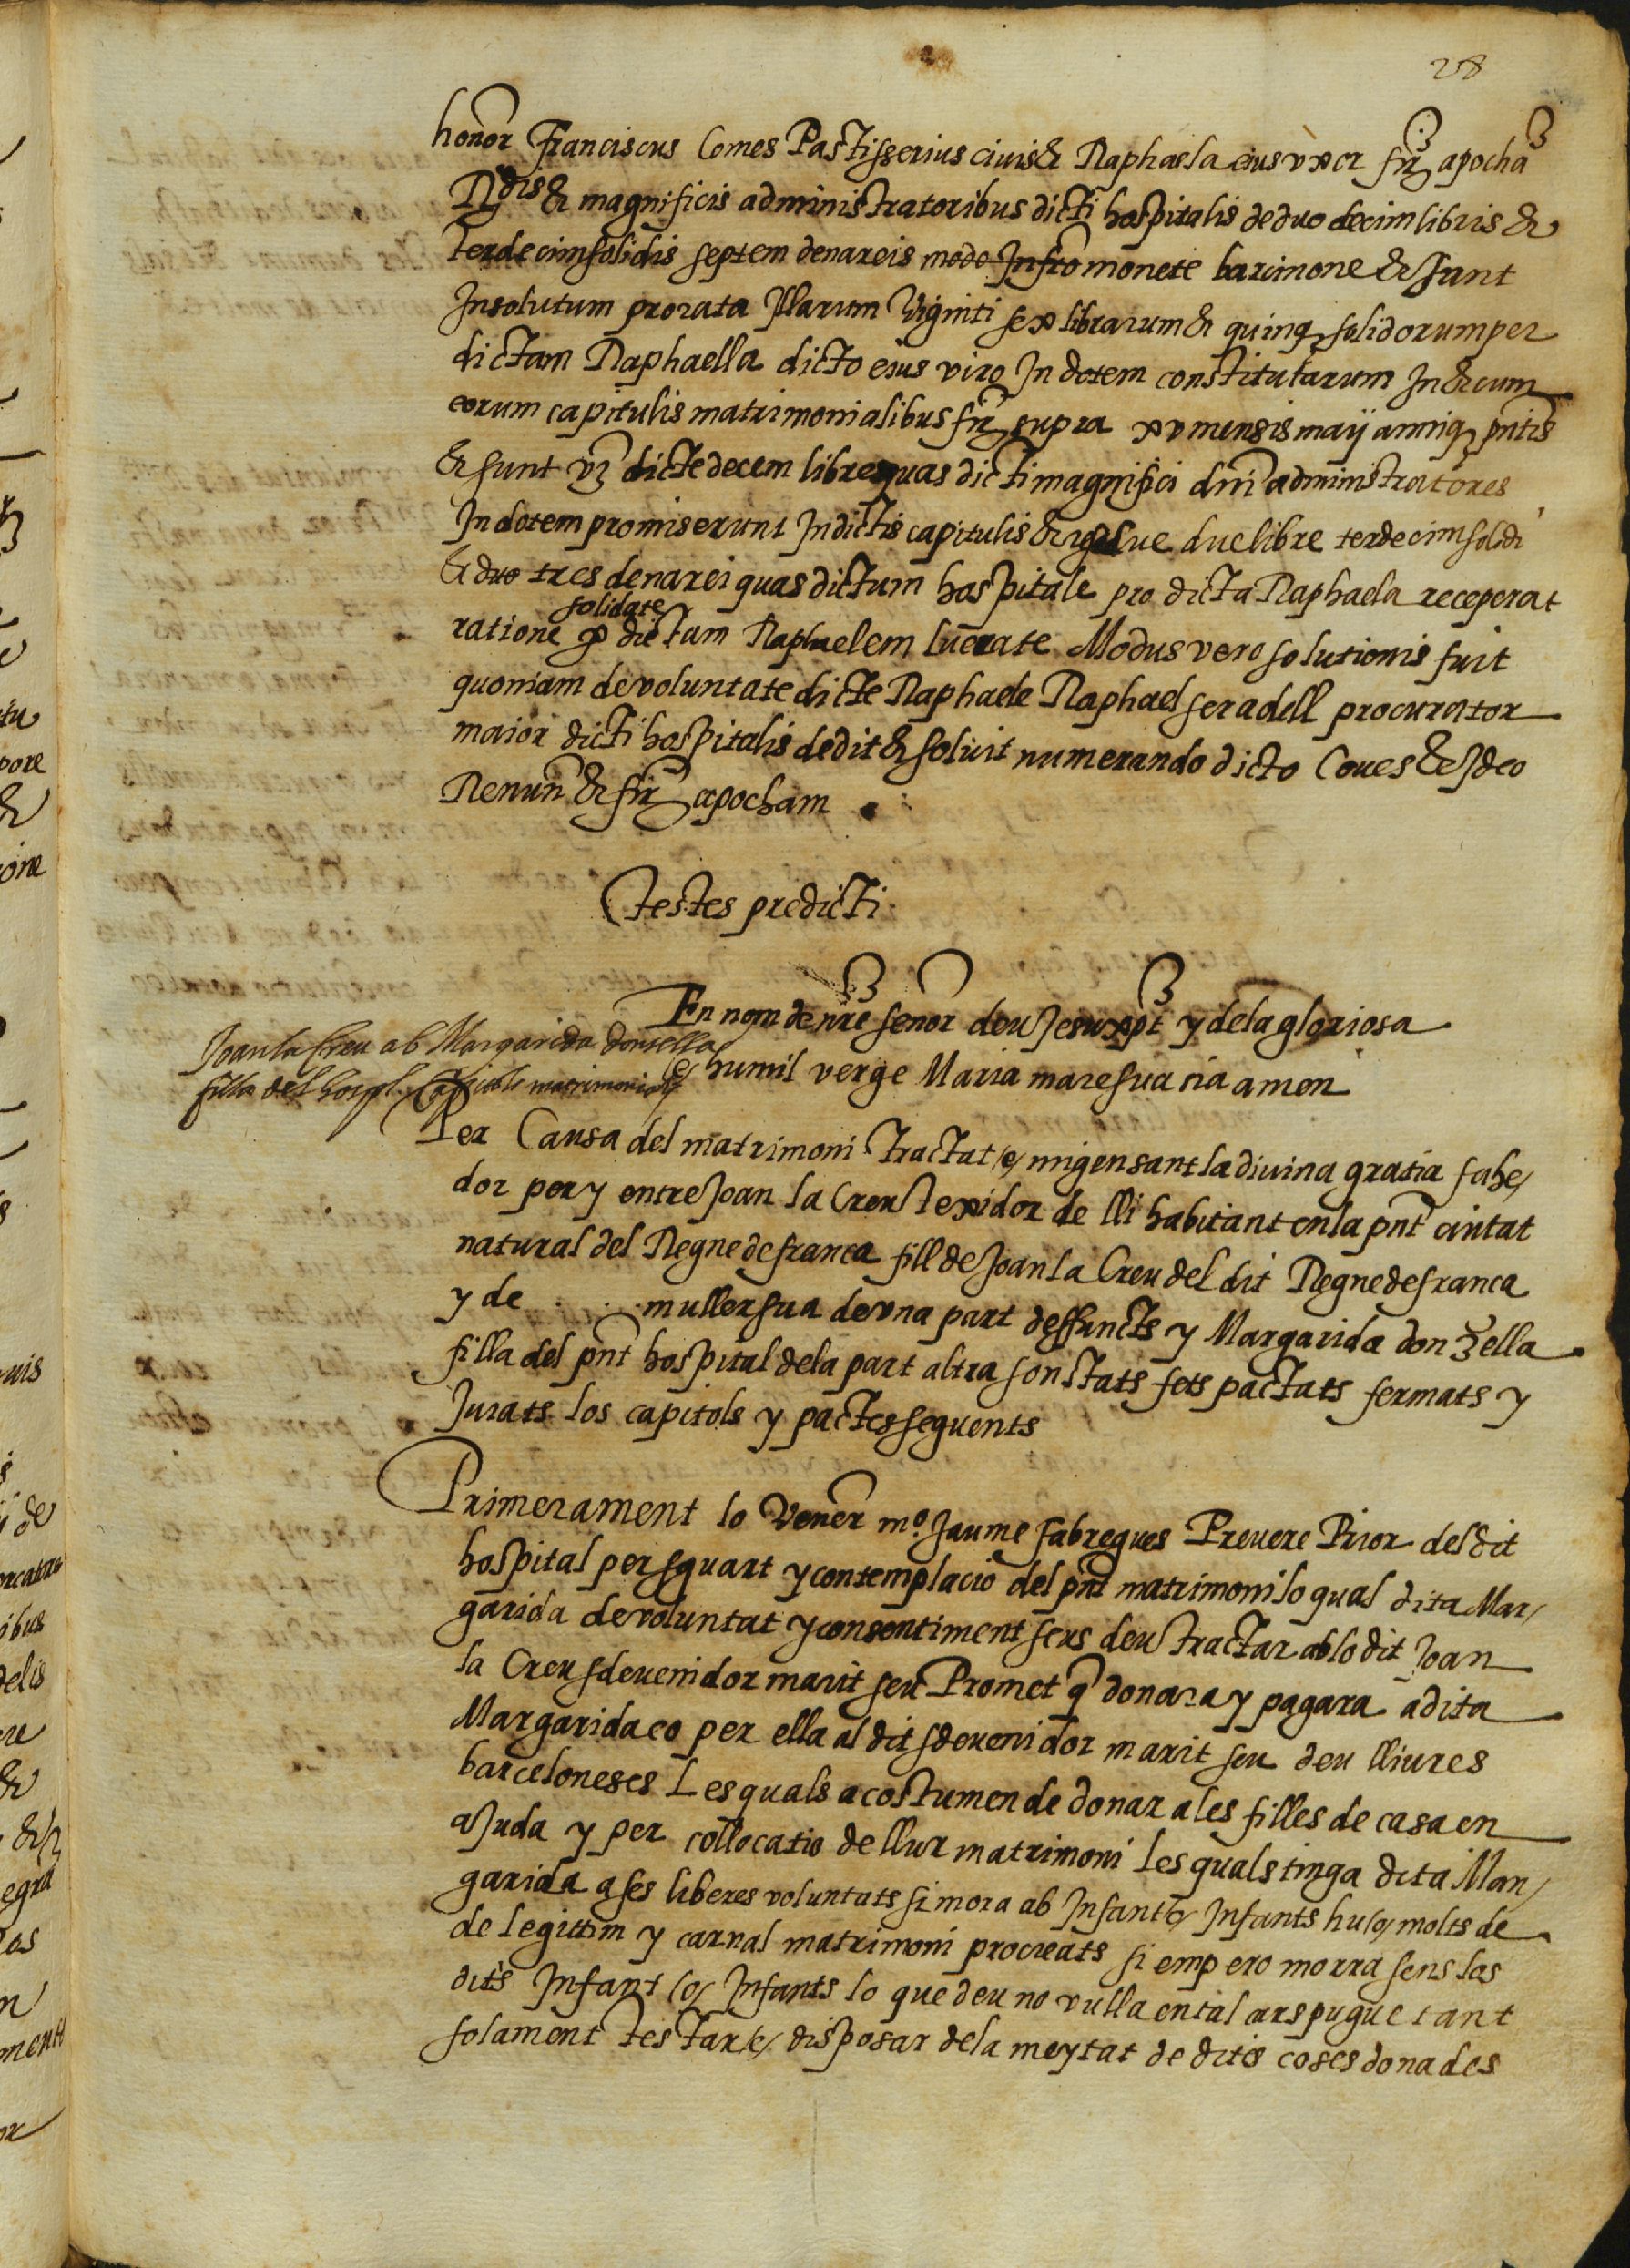 28
honor Franciscus Comes Pastisserius civis & Raphaela eius uxor fir apocha
Rdis & magnificis administratoribus dicti hospitalis de duo decim libris &
terdecim solidis septem denareis modo Infro monete barcinone & sunt
Insolutum prorata Illarum viginti sex librarum & quinq solidorum per
dictam Raphaella dicto eius viro In dotem constitutarum In & cum
eorum capitulis matrimonialibus fir supra xv mensis maij anniq pntis
& sunt vz dicte decem libre quas dicti magnifici dni administratores
In dotem promiserunt In dictis capitulis & due libre terdecim solidi
& duo tres denarei quas dictum hospitale pro dicta Raphaela receperat
solidate
ratione p dictam Raphaelem lucrate Modus vero solutionis fuit
quoniam de voluntate dicte Raphaele Raphael seradell procurator
maior dicti hospitalis dedit & solvit numerando dicto Comes & Ideo
Renun & fir apocham
testes predicti
En nom de nre senor deu Jesu xpt y dela gloriosa
e humil verge Maria mare sua sia amen
Joan la Creu ab Margarida donsella
filla del hospl. Capitols matrimonials
Per Causa del matrimoni tractat /e/ migensant la divina gratia fahe/
dor per y entre Joan la Creu texidor de lli habitant en la pnt ciutat
natural del Regne de franca fill de Joan la Creu del dit Regne de franca
y de . . . muller sua de una part deffuncts y Margarida donzella
filla del pnt hospital dela part altra son stats fets pactats fermats y
Jurats los capitols y pactes seguents
Primerament lo Vener mo. Jaume fabregues Prevere Prior del dit
hospital per sguart y contemplacio del pnt matrimoni lo qual dita Mar/
garida de voluntat y consentiment seus deu tractar ab lo dit Joan
la Creu sdevenidor marit seu Promet q donara y pagara a dita
Margarida eo per ella al dit sdevenidor marit seu deu lliures
barceloneses Les quals acostumen de donar ales filles de casa en
aJuda y per collocatio de llur matrimoni les quals tinga dita Mar/
garida a ses liberes voluntats si mora ab Infant /o/ Infants hu /o/ molts de
de legittim y carnal matrimoni procreats si empero morra sens los
dits Infant /o/ Infants lo que deu no vulla en tal ars pugue tant
solament testar /e/ disposar dela meytat de dites coses donades